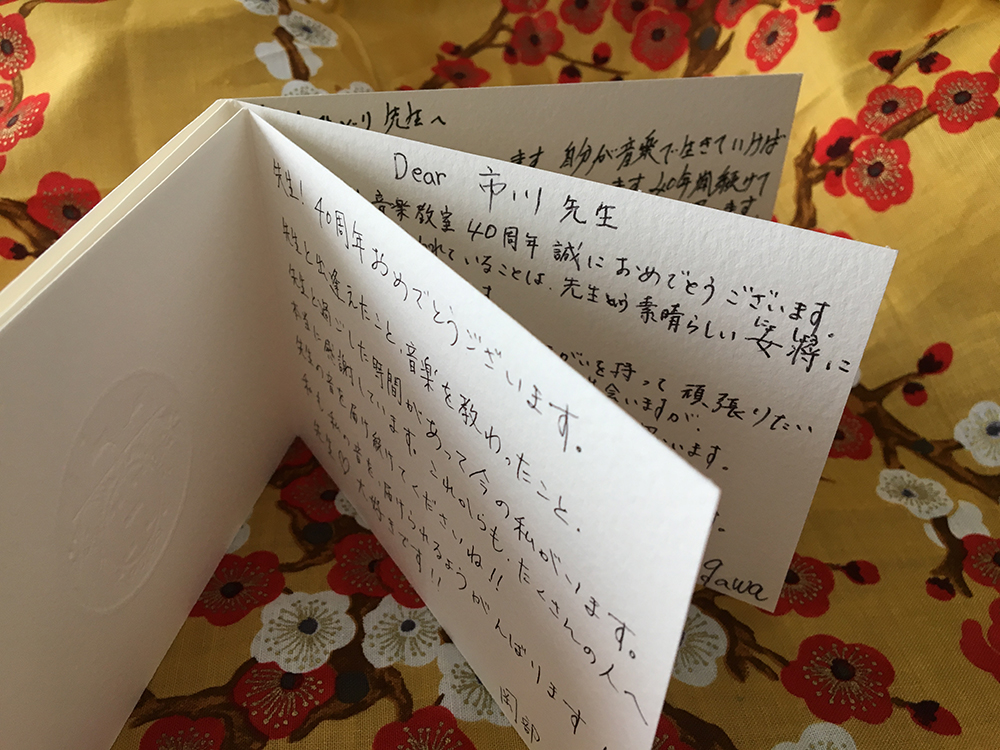 先生! 40周年おめでとうございます。
先生と出逢えたこと、音楽を教わったこと、
先生と過ごした時間があって今の私がいます。
本当に感謝しています。これからも、たくさんの人へ
先生の音を届け続けてくださいね!!
私も私の音を、届けられるようがんばります
先生♡大好きです!!
岡部
Dear 市川 先生
音楽教室 40周年 誠に おめでとうございます。
れていることは、先生 素晴らしい 女将 に
を持って 頑張りたい
いますが、
います。
gawa
先生へ
ます 自分が音楽で生きていけば
ます。40年間続けて
ます。